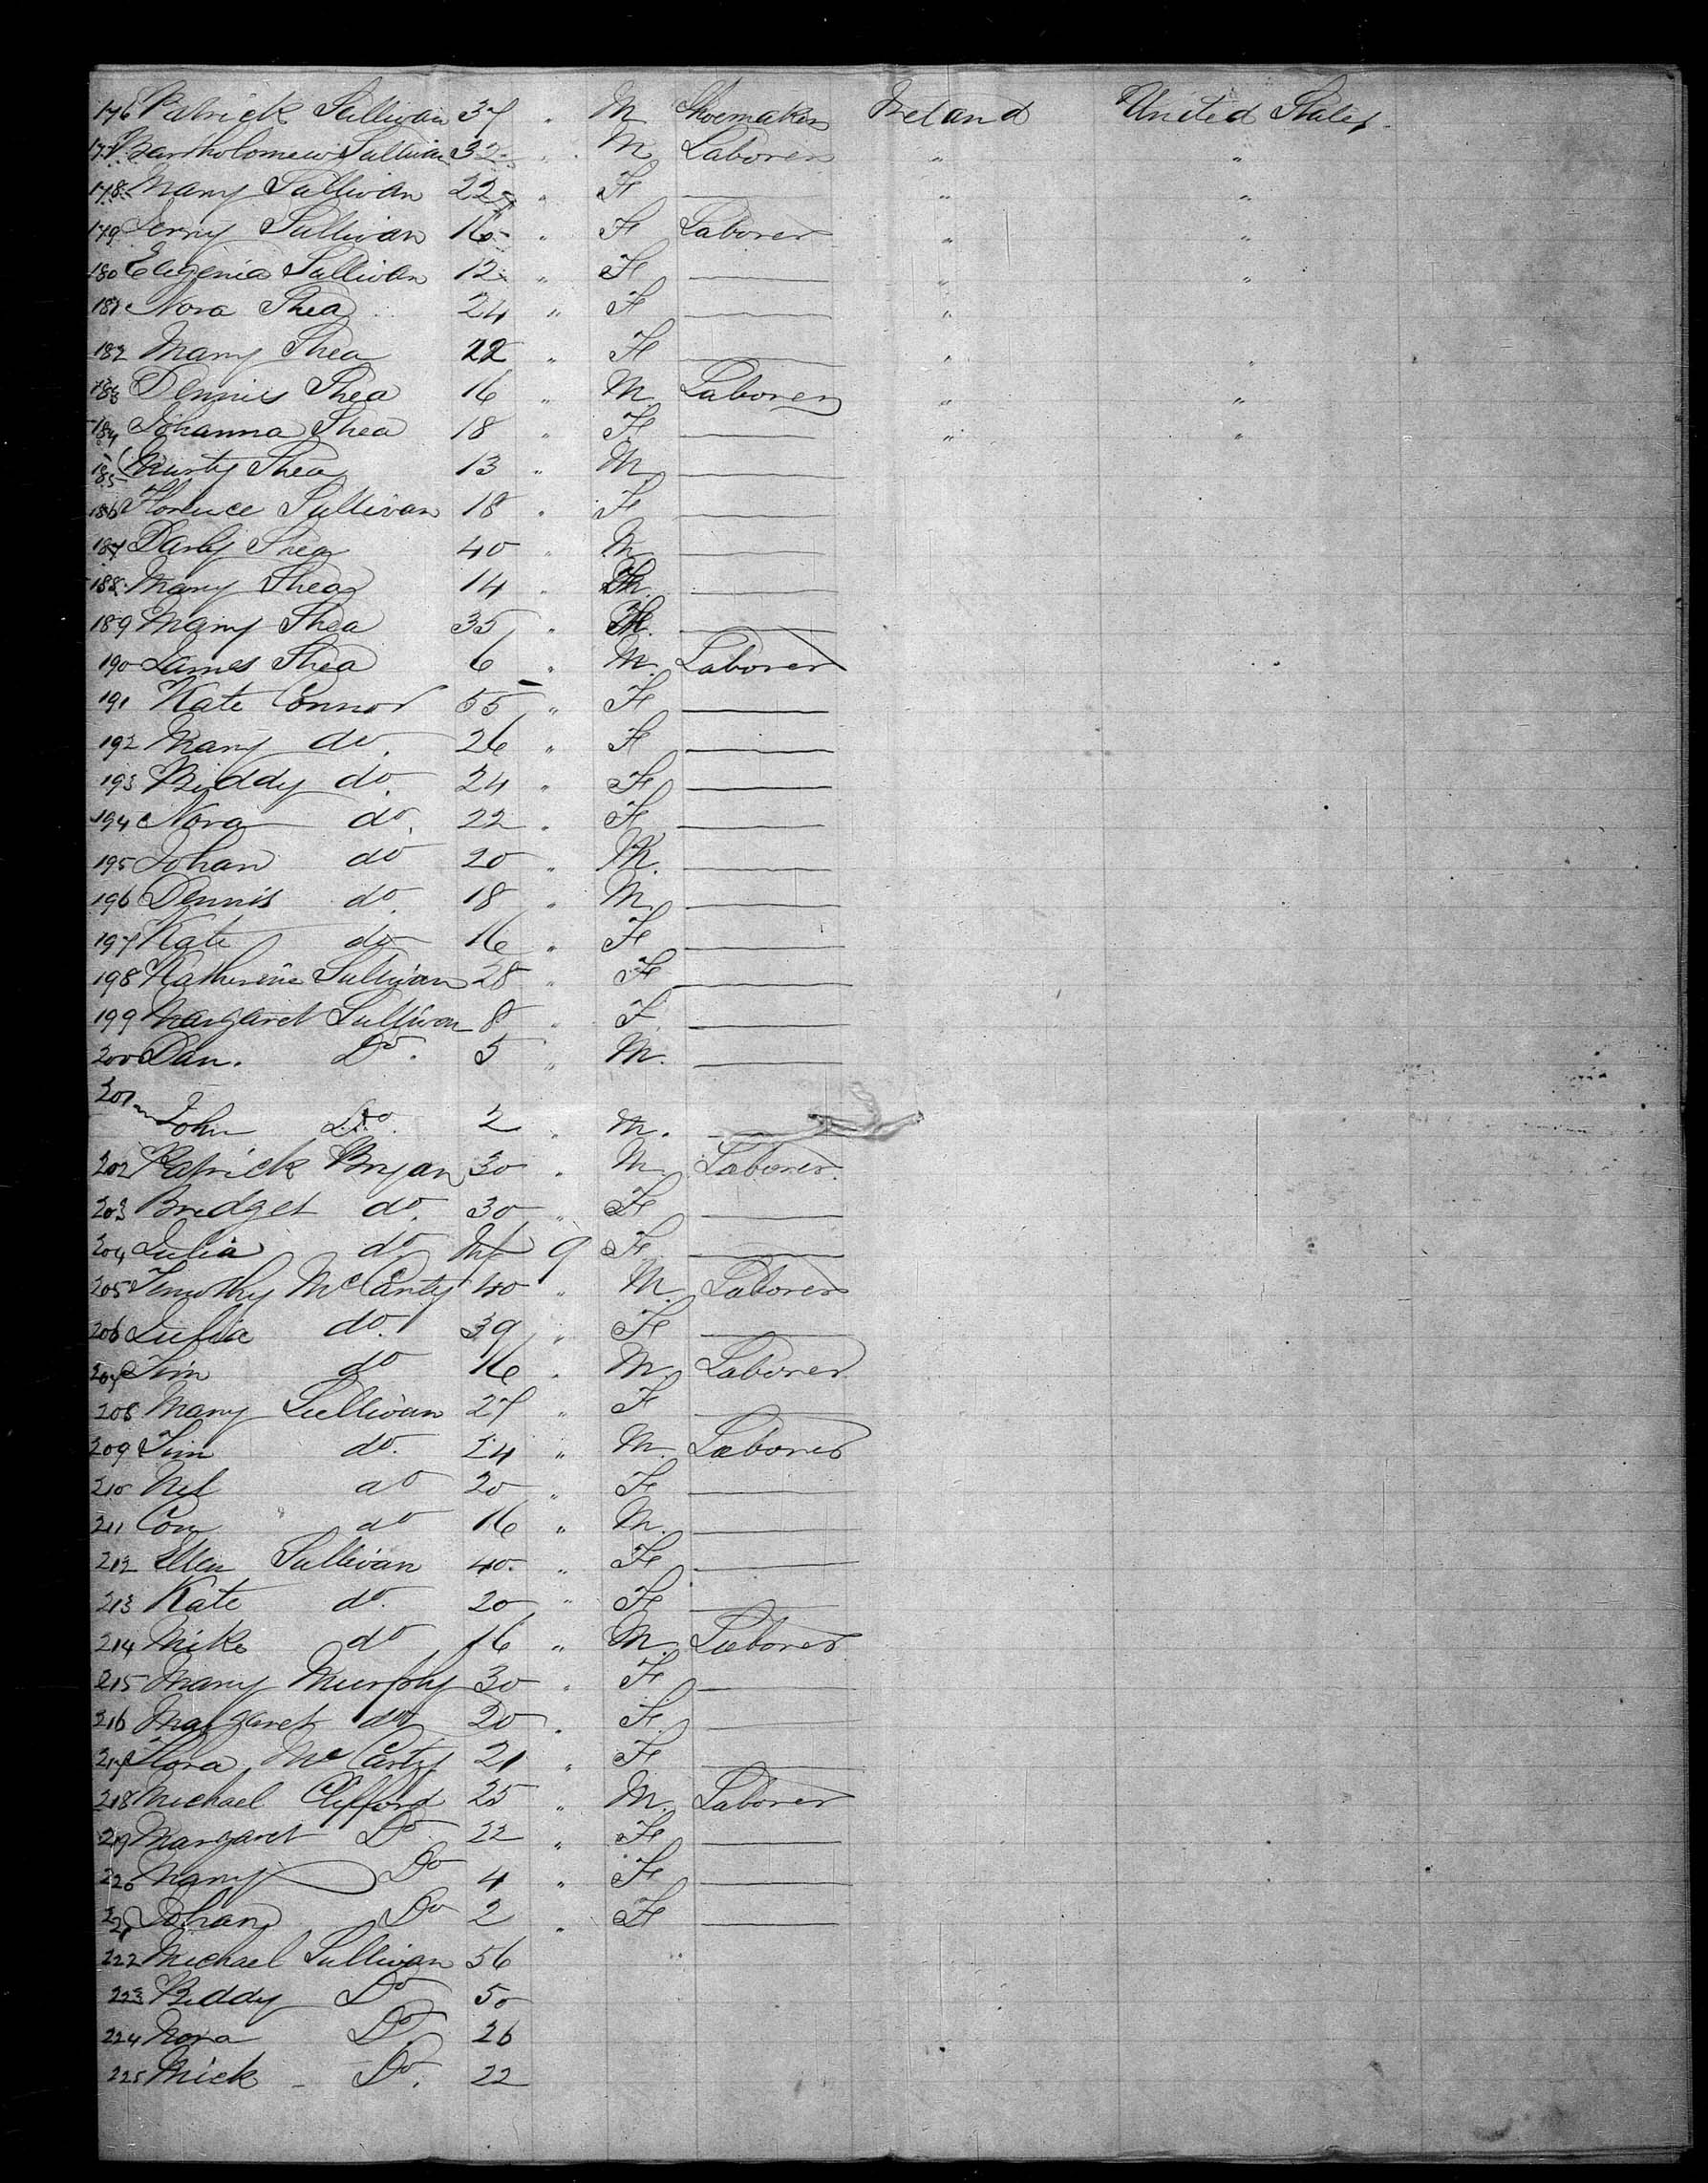 176 Patrick Sullivan 37 " M Shoemaker Ireland United States.
177 Bartholomew Sullivan 32 " M Laborer " "
178 Mary Sullivan 22 " F — " "
179 Jerry Sullivan 16 " F Laborer " "
180 Eugenia Sullivan 12 " F — " "
181 Nora Shea 24 " F — "
182 Mary Shea 22 " F — " "
183 Dennis Shea 16 " M Laborer " "
184 Johanna Shea 18 " F — " "
185 Murty Shea 13 " M —
186 Florence Sullivan 18 " F —
187 Darby Shea 40 " M —
188 Mary Shea 14 " —
189 Mary Shea 35 " —
190 James Shea 6 " M. Laborer
191 Kate Connor 55 " F —
192 Mary do. 26 " F —
193 Biddy do. 24 " F —
194 Nora do. 22 " F —
195 Johan do 20 " M. —
196 Dennis do. 18 " M. —
197 Kate do 16 " F —
198 Katherine Sullivan 28 " F —
199 Margaret Sullivan 8 " F —
200 Dan. Do. 5 " M. —
201 John Do. 2 " M. —
202 Patrick Bryan 30 " M Laborer.
203 Bridget do. 30 " F —
204 Julia do. Inf 9 F —
205 Timothy McCarty 40 " M. Laborer
206 Julia do. 39 " F —
207 Tim do 16 " M. Laborer
208 Mary Sullivan 27 " F —
209 Tim do. 24 " M. Laborer
210 Nel do 20 " F —
211 Con do 16 " M. —
212 Ellen Sullivan 40. " F —
213 Kate do. 20 " F —
214 Mike do 16 " M. Laborer
215 Mary Murphy 30 " F —
216 Margaret do 20 " F. —
217 Flora McCarty 21 " F —
218 Michael Clifford 25 " M. Laborer
219 Margaret Do 22 " F —
220 Mary Do 4 " F —
221 Johan Do 2 " F —
222 Michael Sullivan 56
223 Biddy Do 50
224 Nora Do. 26
225 Mick - Do. 22